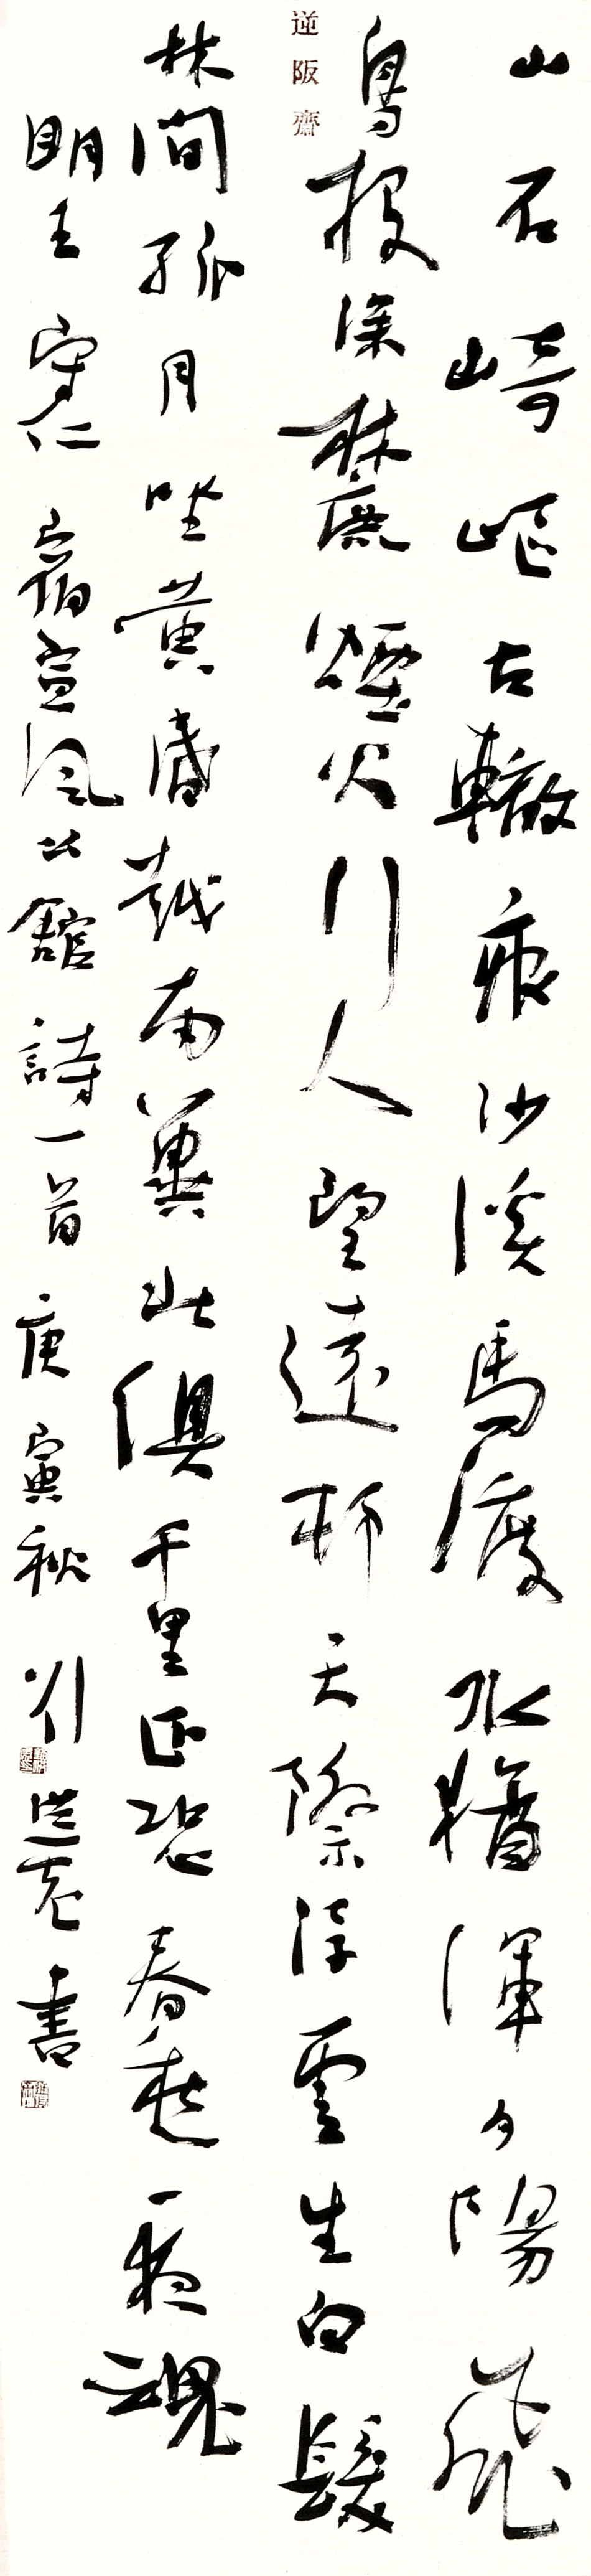 逆阪齋
山石崎嶇古轍痕沙溪馬渡水猶渾夕陽飛
鳥投深麓煙火行人望遠邨天際浮雲生白髮
林間孤月坐黃昏越南冀北俱千里正恐春愁一夜魂
明王守仁宿宣風公館詩一首庚寅秋劉洪彪書